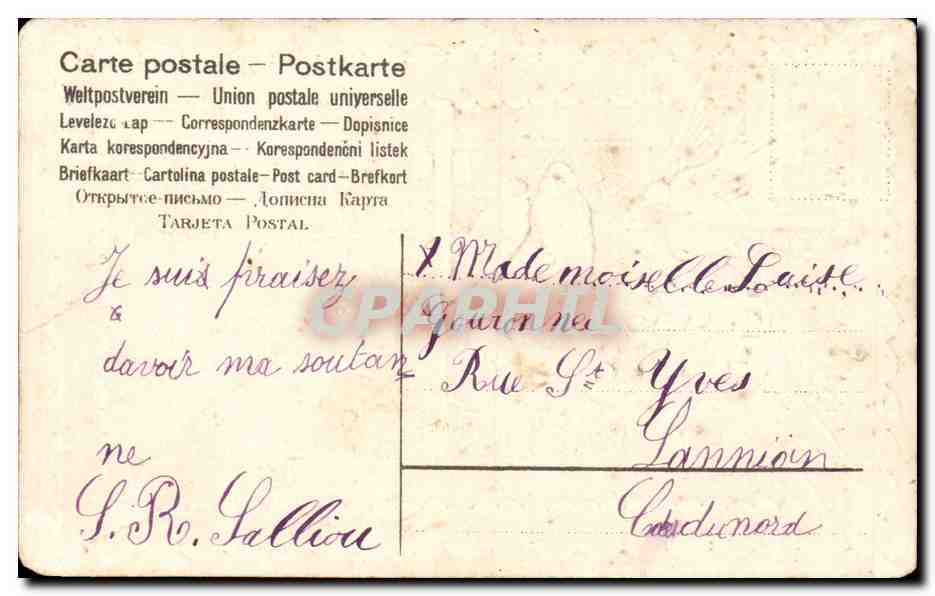 Carte postale – Postkarte
Weltpostverein — Union postale universelle
Levelező-Lap — Correspondenzkarte — Dopisnice
Karta korespondencyjna – Korespondenčni listek
Briefkaart – Cartolina postale – Post card – Brefkort
Открытое письмо — Дописна Карта
TARJETA POSTAL
Je suis praisez
davoir ma soutan=
ne
S. R. Salliou
Mademoiselle Louise
Gouronnec
Rue St Yves
Lannion
Cdunord
CPAPHIL